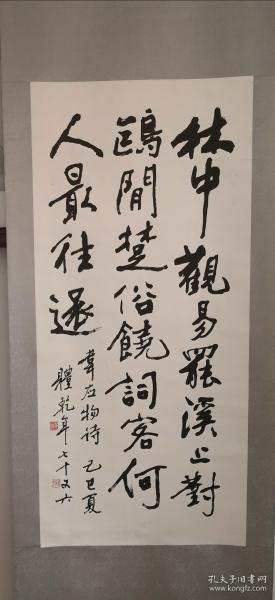 林中觀易罷溪上對
鷗閒楚俗饒詞客何
人最往還
韋应物诗 己巳夏
體乾年七十又六
孔夫子旧书网